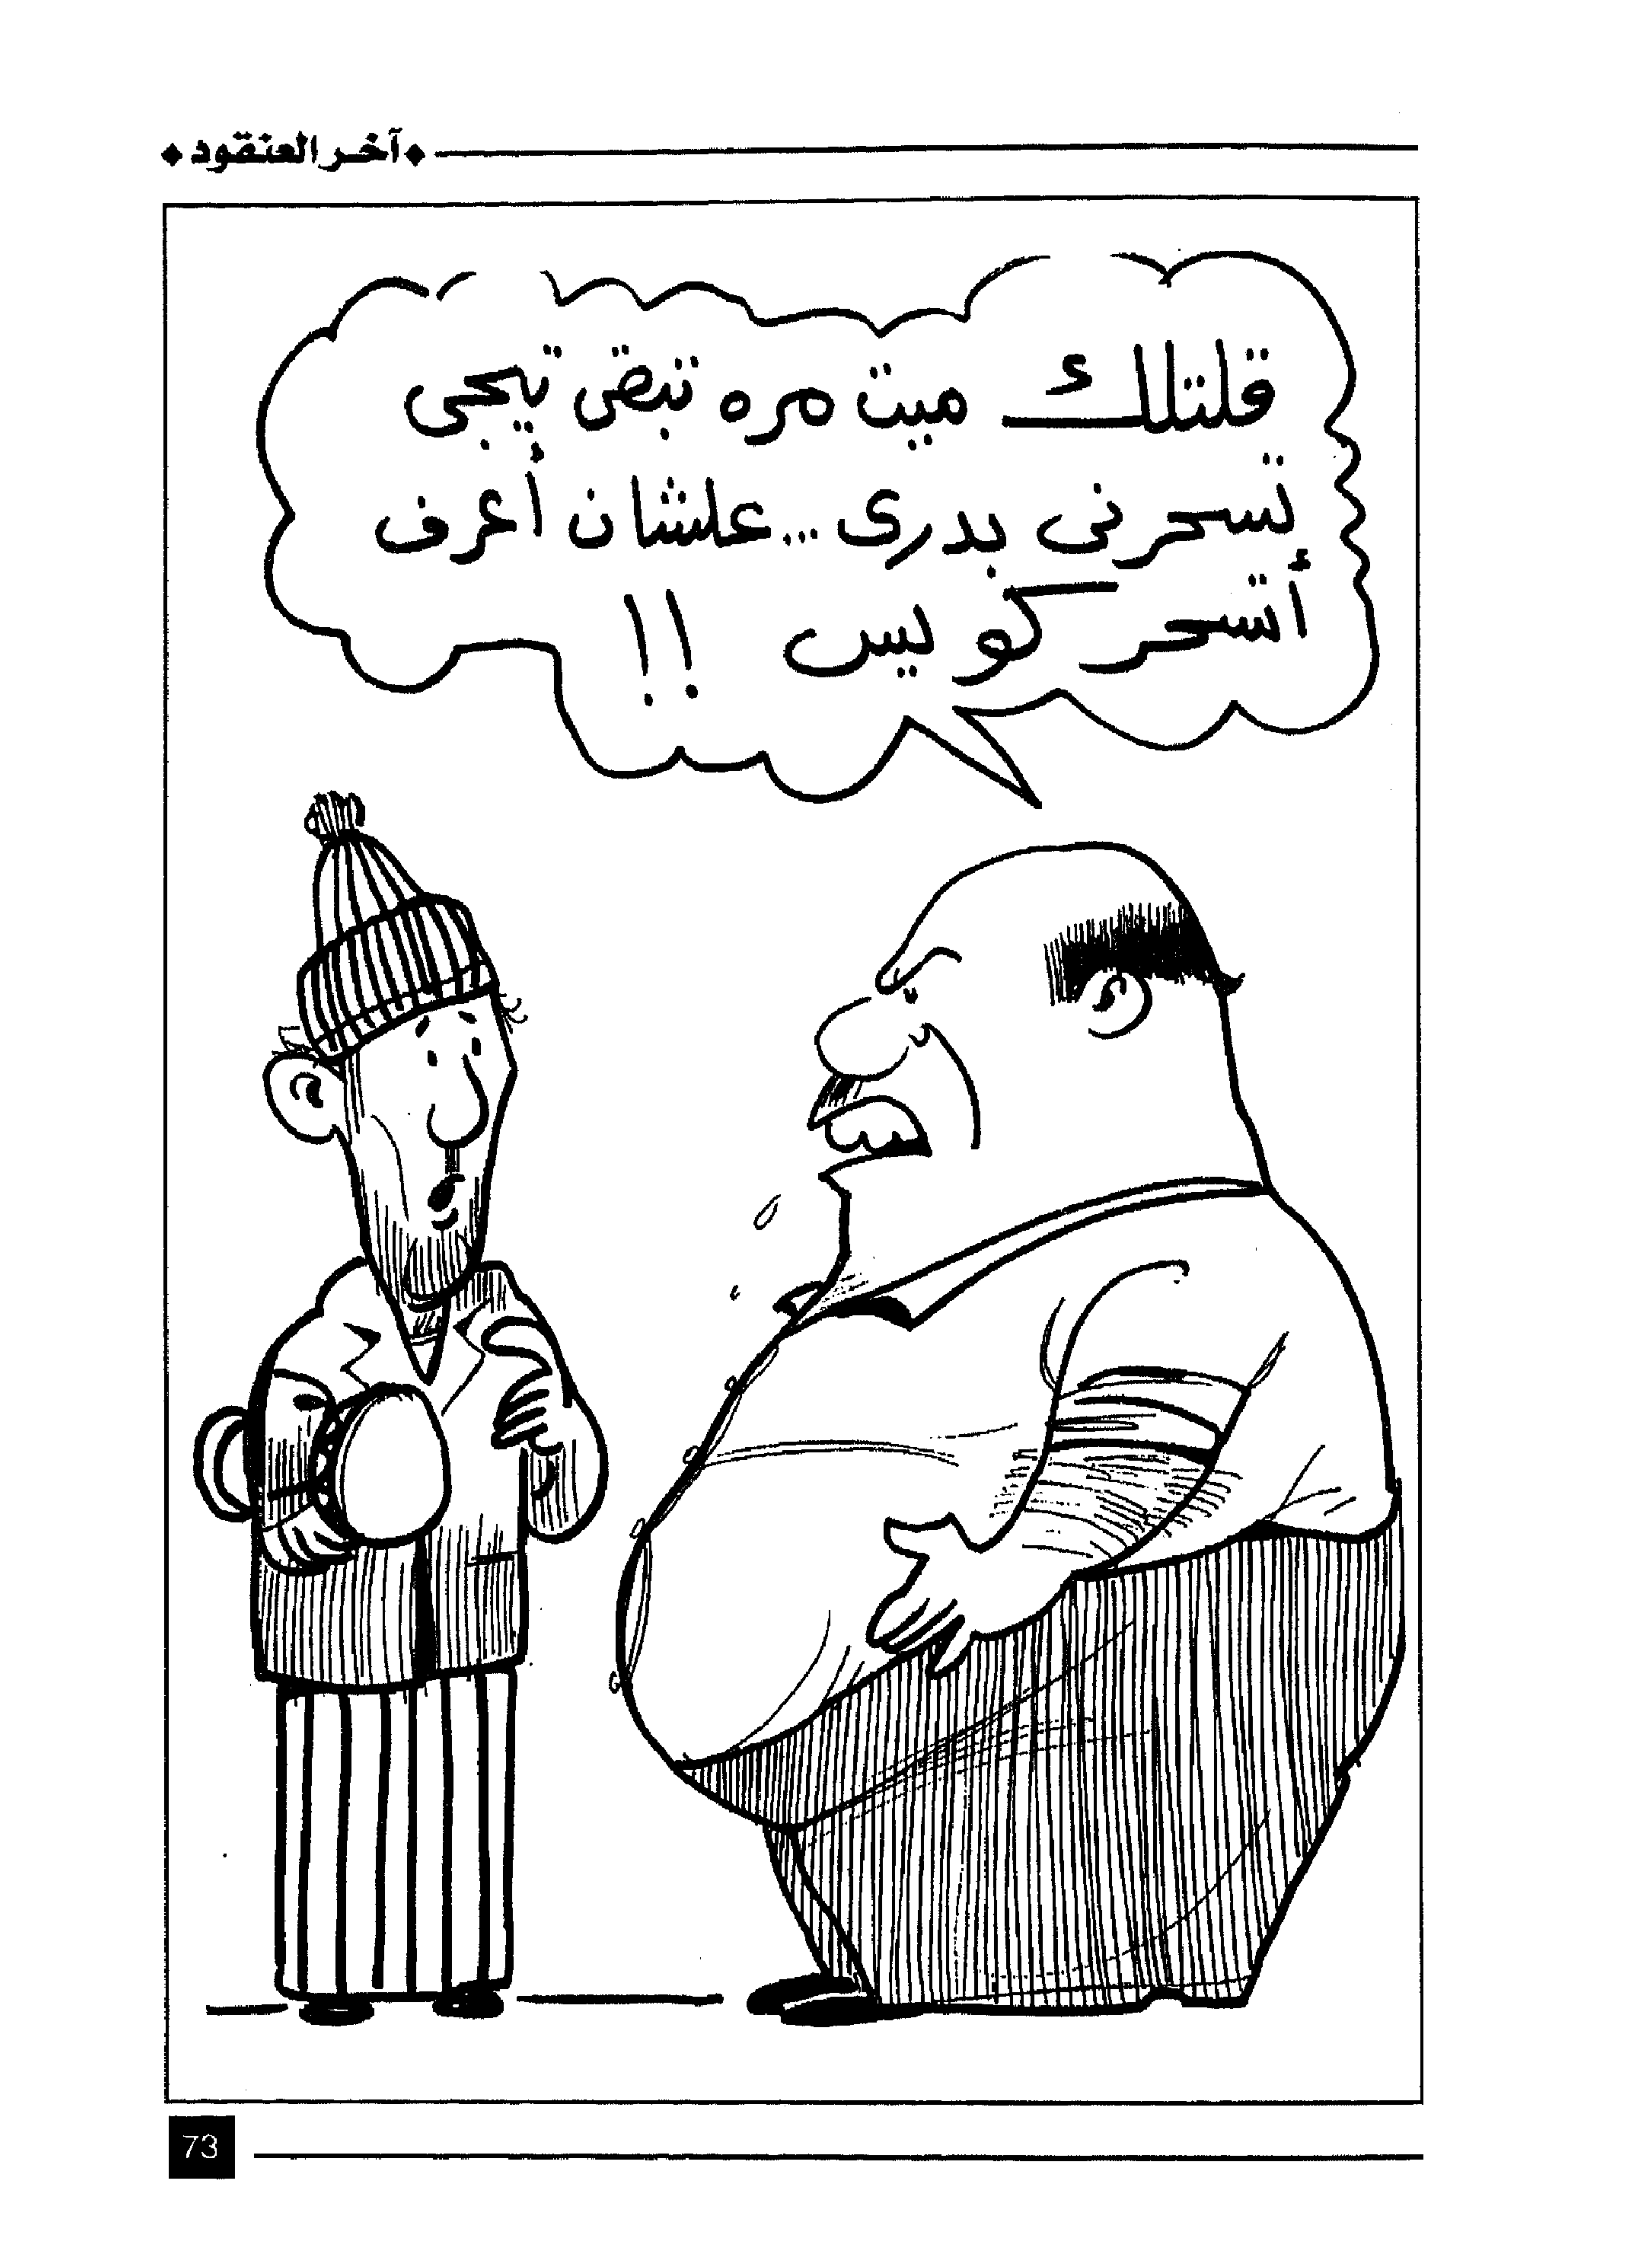 آخر العنقود
قلتلك ميت مره تبقى تيجى
تسحرنى بدرى ... علشان أعرف
أتسحر كويس !!
73